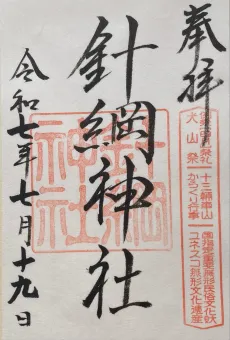 奉拝
針綱神社祭礼
犬山祭
十三輌車山
からくり
国指定重要無形民俗文化財
ユネスコ無形文化遺産
針綱神社
針綱
神社
令和七年七月十九日